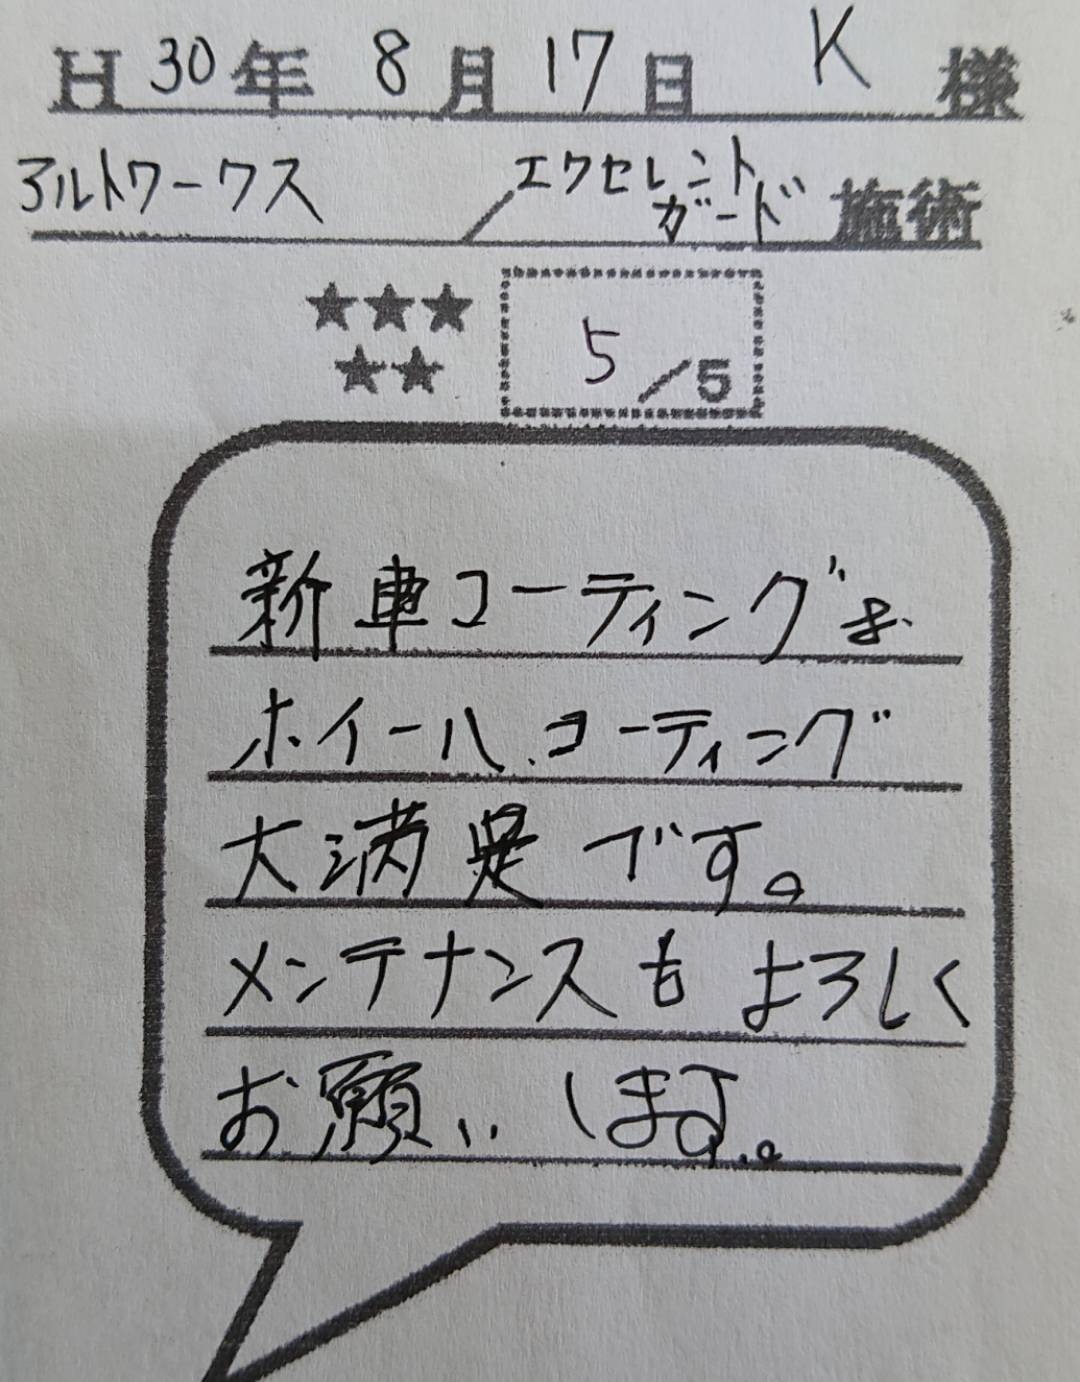 H30年8月17日 K 様
アルトワークス／エクセレントガード 施術
★★★
★★
5／5
新車コーティング&
ホイールコーティング
大満足です。
メンテナンスもよろしく
お願いします。